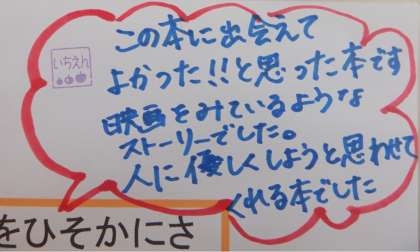 この本に出会えて
よかった!!と思った本です
いちえん
映画をみているような
ストーリーでした。
人に優しくしようと思わせて
くれる本でした
をひそかにさ